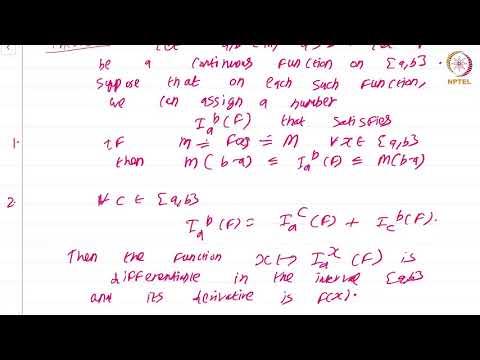 be a continuous function on [a,b].
NPTEL
Suppose that on each such function,
we can assign a number
I_a^b(F) that satisfies
1. if m ≤ F(x) ≤ M ∀ x ∈ [a,b]
then m(b-a) ≤ I_a^b(F) ≤ M(b-a)
2. ∀ c ∈ [a,b]
I_a^b(F) = I_a^c(F) + I_c^b(F).
Then the function x ↦ I_a^x(F) is
differentiable in the interval [a,b]
and its derivative is F(x).